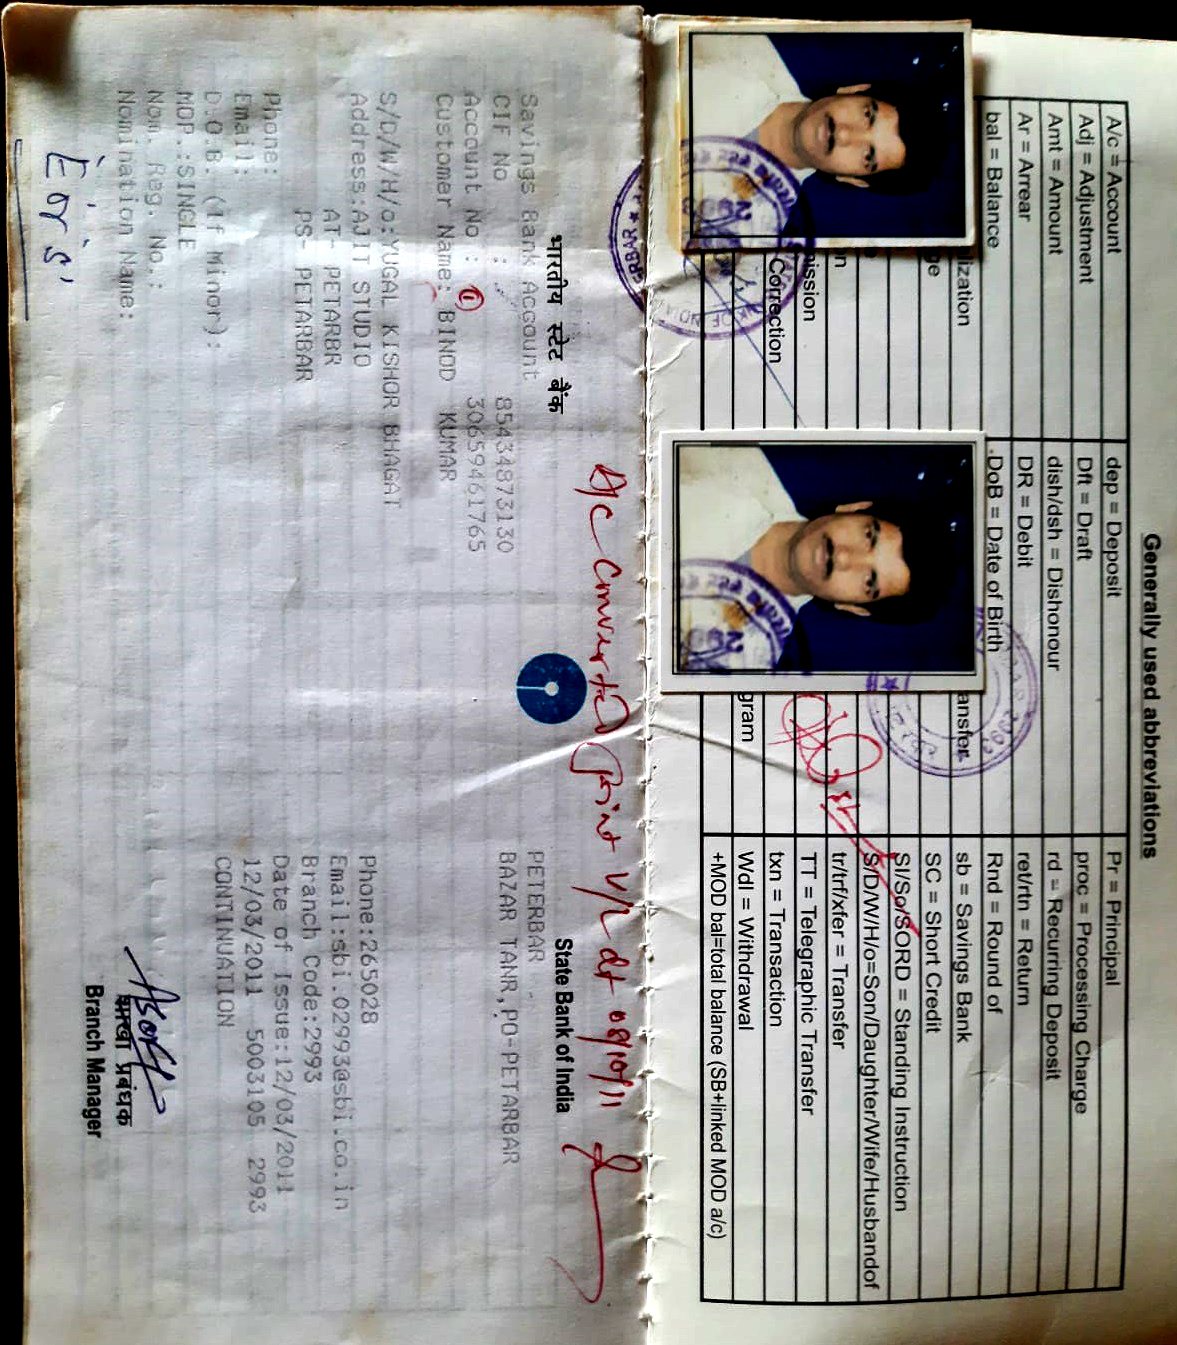 Generally used abbreviations
A/c = Account
dep = Deposit
Pr = Principal
Adj = Adjustment
Dft = Draft
proc = Processing Charge
Amt = Amount
dish/dsh = Dishonour
rd = Recurring Deposit
Ar = Arrear
DR = Debit
ret/rtn = Return
bal = Balance
DoB = Date of Birth
Rnd = Round of
sb = Savings Bank
SC = Short Credit
SI/So/SORD = Standing Instruction
S/D/W/H/o=Son/Daughter/Wife/Husbandof
tr/trf/xfer = Transfer
TT = Telegraphic Transfer
Correction
txn = Transaction
Wdl = Withdrawal
+MOD bal=total balance (SB+linked MOD a/c)
A/c Converted Joint V/L dt 08/10/11
भारतीय स्टेट बैंक
State Bank of India
Savings Bank Account
PETERBAR
CIF No : 85434873130
BAZAR TANR,PO-PETARBAR
Account No : 30659461765
Customer Name: BINOD KUMAR
S/D/W/H/o:YUGAL KISHOR BHAGAT
Address:AJIT STUDIO
Phone:265028
AT- PETARBR
Email:sbi.02993@sbi.co.in
PS- PETARBAR
Branch Code:2993
Phone:
Date of Issue:12/03/2011
Email:
12/03/2011 5003105 2993
D.O.B. (if Minor):
CONTINUATION
MOP.:SINGLE
Nom. Reg. No.:
Nomination Name:
शाखा प्रबंधक
Branch Manager
E or S